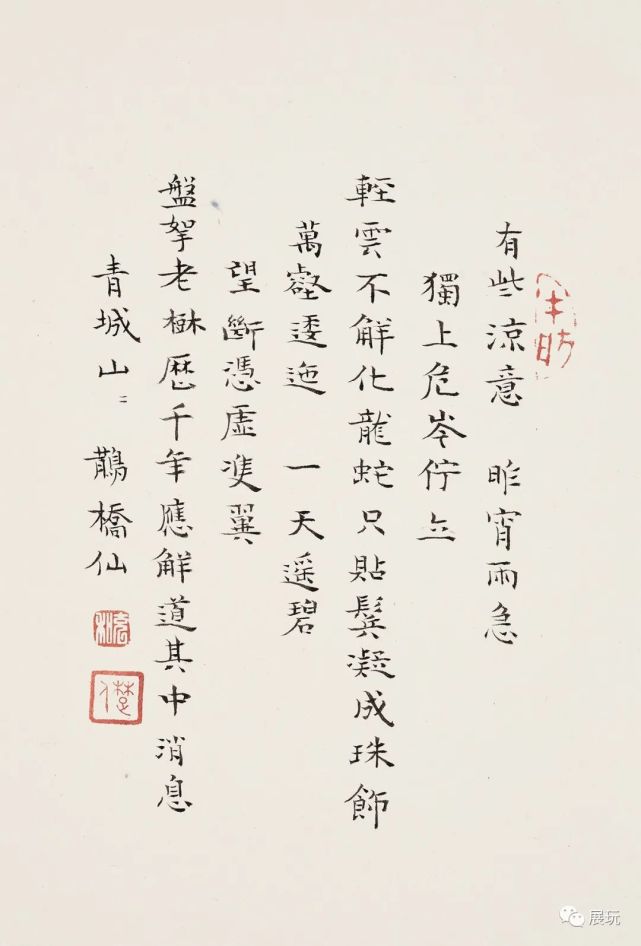 有些涼意 昨宵雨急
獨上危岑佇立
輕雲不解化龍蛇只貼鬢凝成珠飾
萬壑逶迤 一天遥碧
望斷憑虛雙翼
盤拏老樹歷千年應解道其中消息
青城山〻 鵲橋仙
展玩